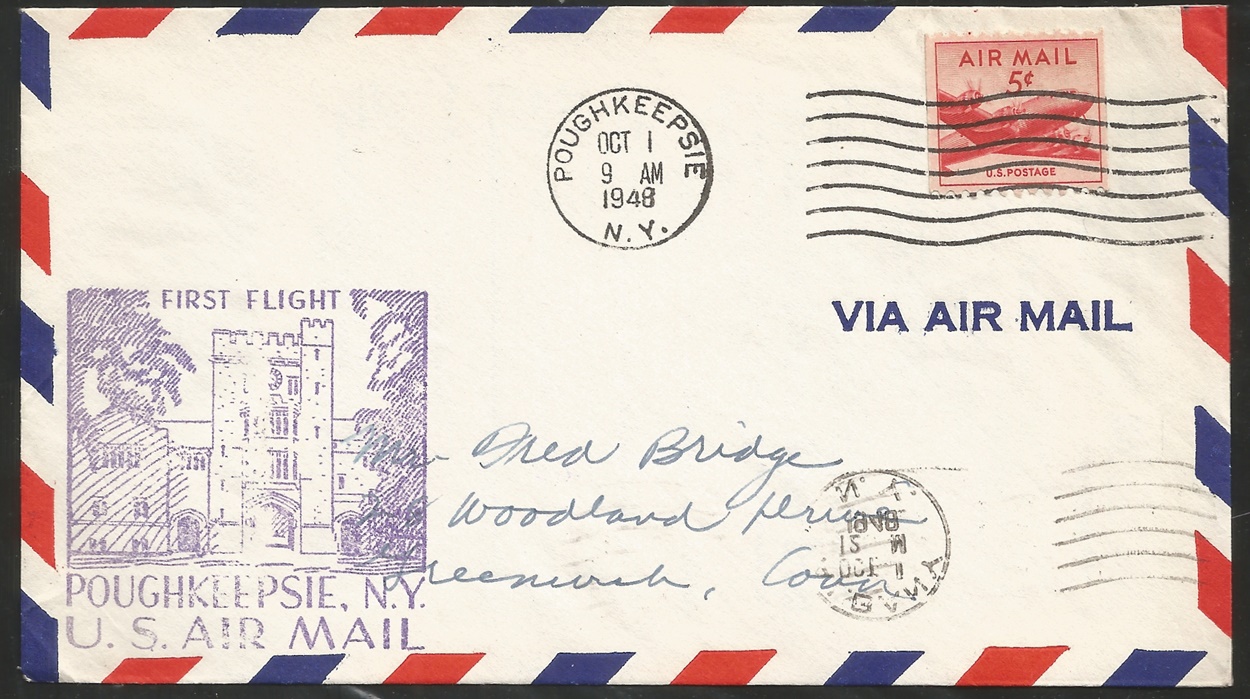 AIR MAIL
5¢
U.S. POSTAGE
POUGHKEEPSIE
OCT 1
9 AM
1948
N.Y.
VIA AIR MAIL
FIRST FLIGHT
POUGHKEEPSIE, N.Y.
U.S. AIR MAIL
Mr. Fred Bridge
Woodland Drive
Greenwich, Conn
ALBANY
OCT 1
12 M
1948
N.Y.